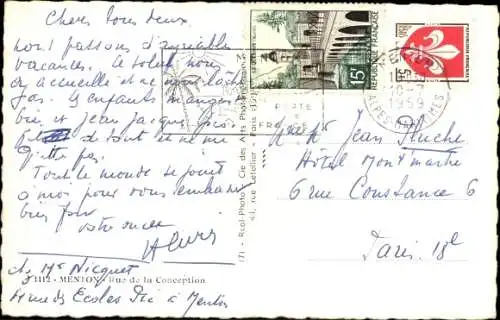 Chers tous deux
nous passons d'agréables
vacances. Le soleil nous
a accueilli et ne nous lâche
pas. Les enfants mangent
bien et Jean Jacques
de tout et ne me
quitte pas.
Tout le monde se joint
à moi pour vous embrasser
bien fort
votre
ch. Mr Nicquet
4 rue des Ecoles Pie à Menton
1112 - MENTON - Rue de la Conception
171 - Réal-Photo, Cie des Arts Photomécaniques
RÉPUBLIQUE FRANÇAISE
15F
PORTE
1959
ALPES MARITIMES
Jean Pluche
Hôtel Montmartre
6 rue Constance 6
Paris 18e